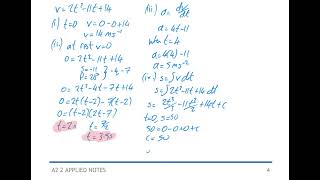 v = 2t² - 11t + 14
(i) t=0 v = 0-0+14
v = 14 ms⁻¹
(ii) at rest v=0
0 = 2t² - 11t + 14
S = -11
P = 28
} -4, -7
0 = 2t² - 4t - 7t + 14
0 = 2t(t-2) - 7(t-2)
0 = (t-2)(2t-7)
t = 2s t = 7/2
t = 3.5s
(iii) a = dv/dt
a = 4t - 11
when t = 4
a = 4(4) - 11
a = 5 ms⁻²
(iv) s = ∫v dt
s = ∫2t² - 11t + 14 dt
s = 2t³/3 - 11t²/2 + 14t + c
t=0, s=50
50 = 0-0+0+c
c = 50
A2 2 APPLIED NOTES
4